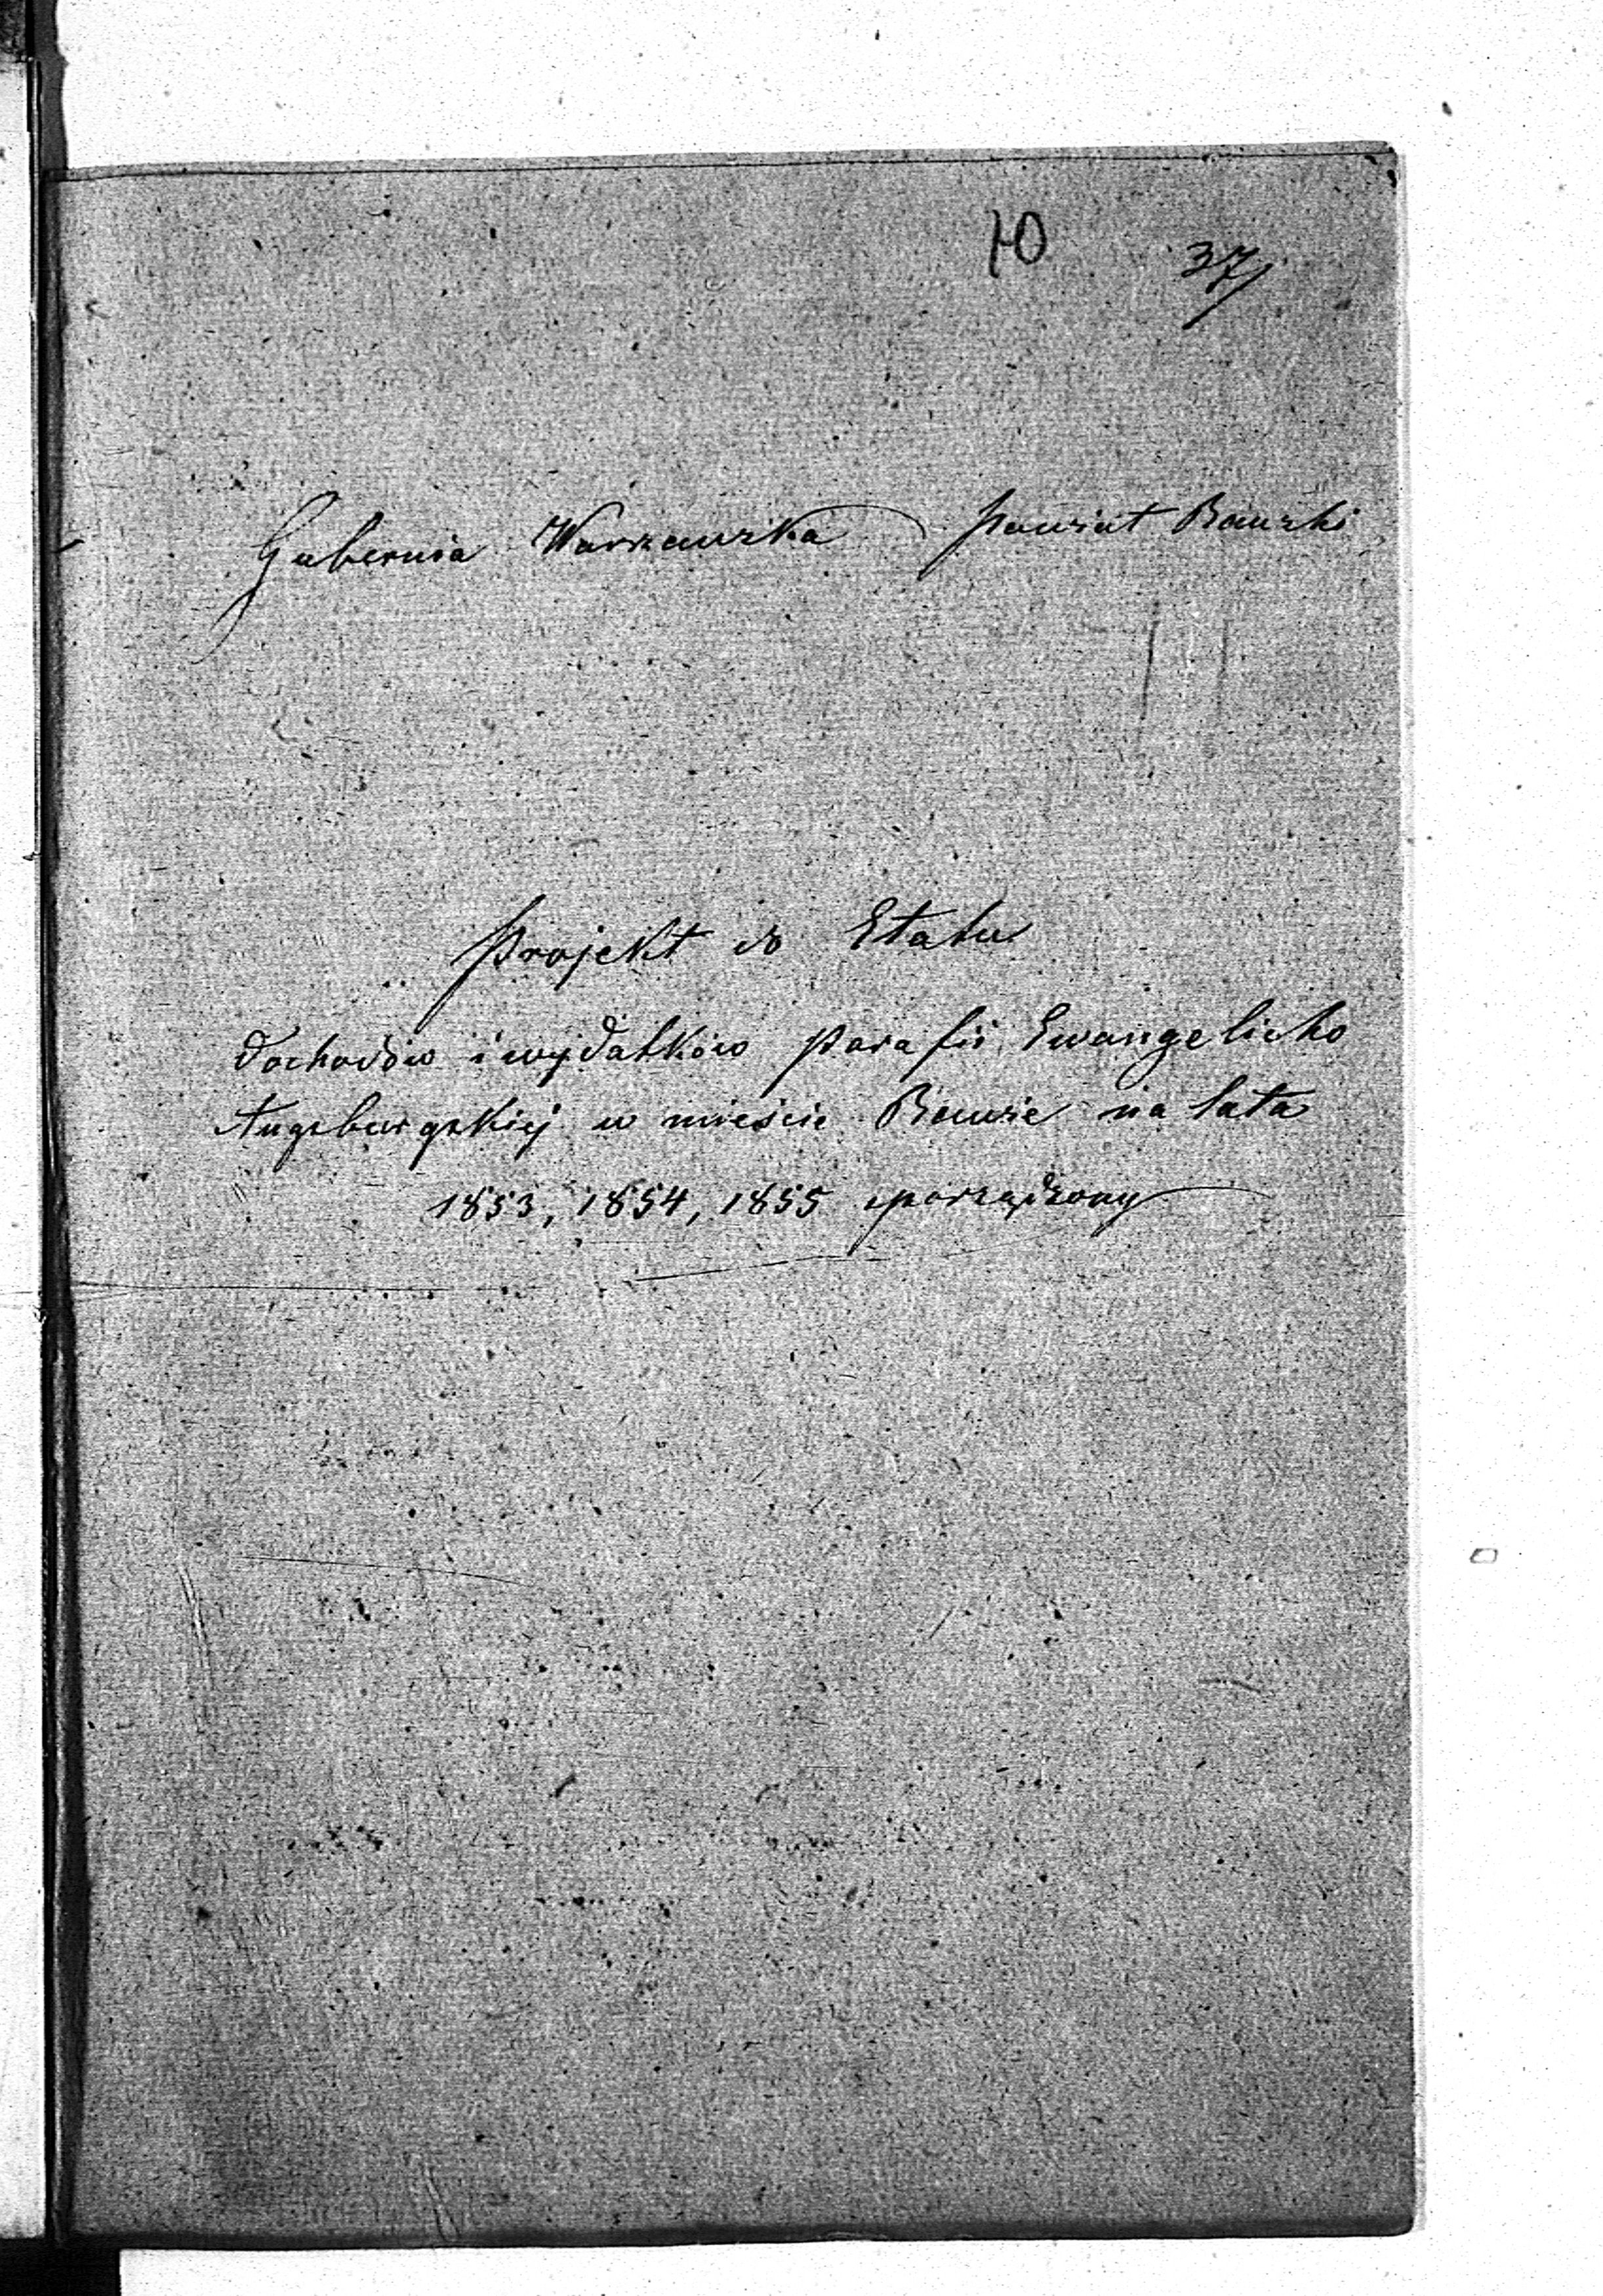 10 37
Gubernia Warszawska Powiat Rawski
Projekt do Etatu
dochodów i wydatków Parafii Ewangelicko
Augsburgskiej w mieście Rawie na lata
1853, 1854, 1855 sporządzony